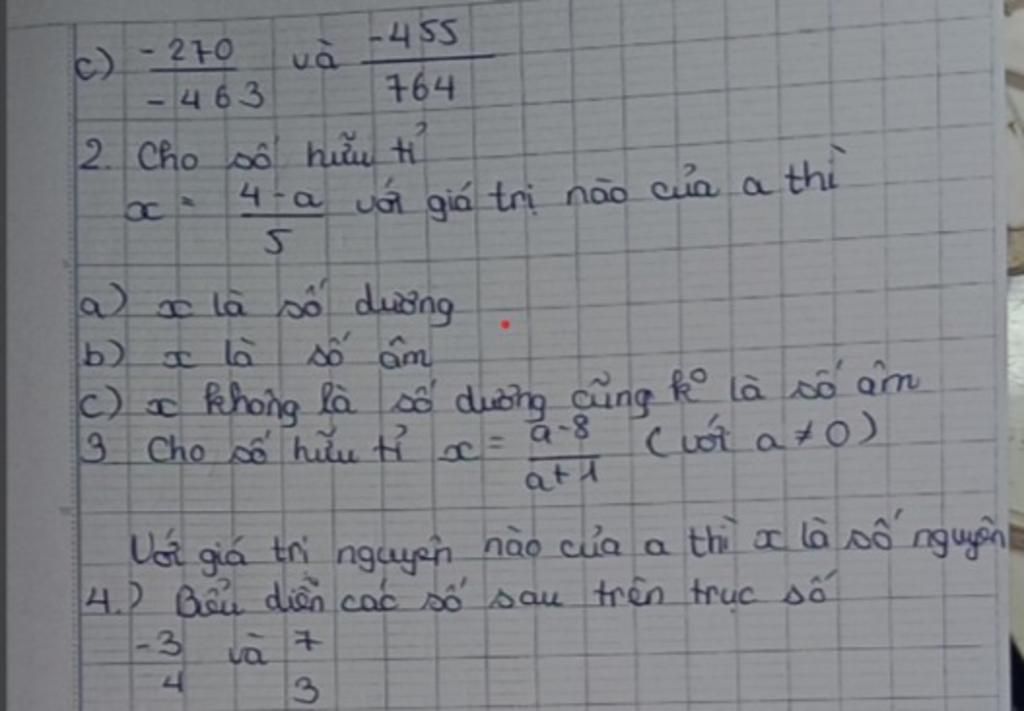 c) -270/-463 và -455/764
2. Cho số hữu tỉ
x = 4-a/5 với giá trị nào của a thì
a) x là số dương
b) x là số âm
c) x không là số dương cũng k° là số âm
3 Cho số hữu tỉ x = a-8/a+1 (với a ≠ 0)
Với giá trị nguyên nào của a thì x là số nguyên
4.) Biểu diễn các số sau trên trục số
-3/4 và 7/3